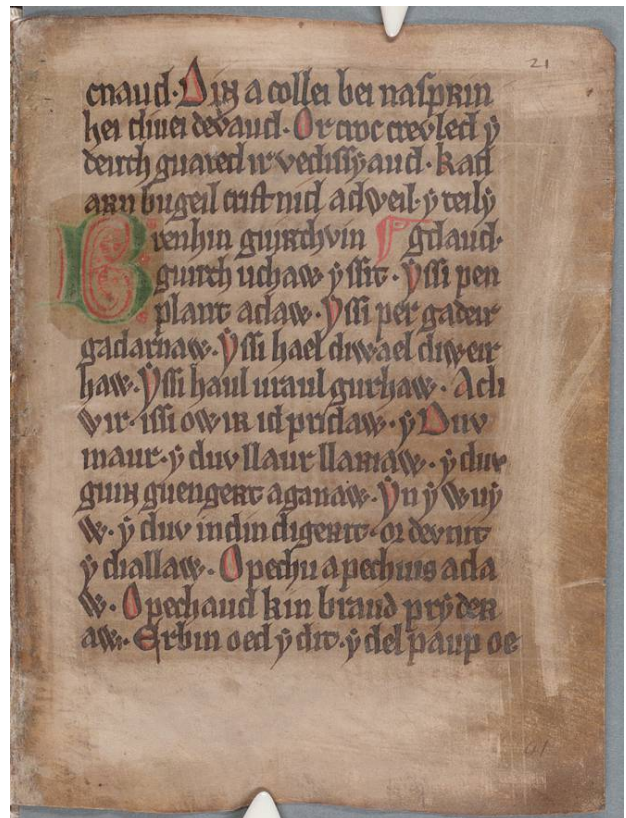 21
cnaud. Din a collei bei nasprin
hei diuei devaud. Or croc crevled ẏ
deuth guared ir vedissyaud. kad
arn bugeil cristnid advveil. ẏ teilẏ
Brenhin guirthvin gvlaud.
guirth uchaw ẏssit. ẏssi pen
plant adaw. ẏssi per gadeir
gadarnaw. ẏssi hael diwael diweir
haw. ẏssi haul uraul gurhaw. Ach
vir. issi owir id pridaw. ẏ Duv
maur. ẏ duv llaur llariaw. ẏ duv
guin guengert aganaw. ẏn ẏ wuẏ
w. ẏ duv indin digerit. or devnit
ẏ diallaw. O pechu a pechuis ada
w. O pechaud kin braud prẏder
aw. Erbin oed ẏ dit. ẏ del paup oe